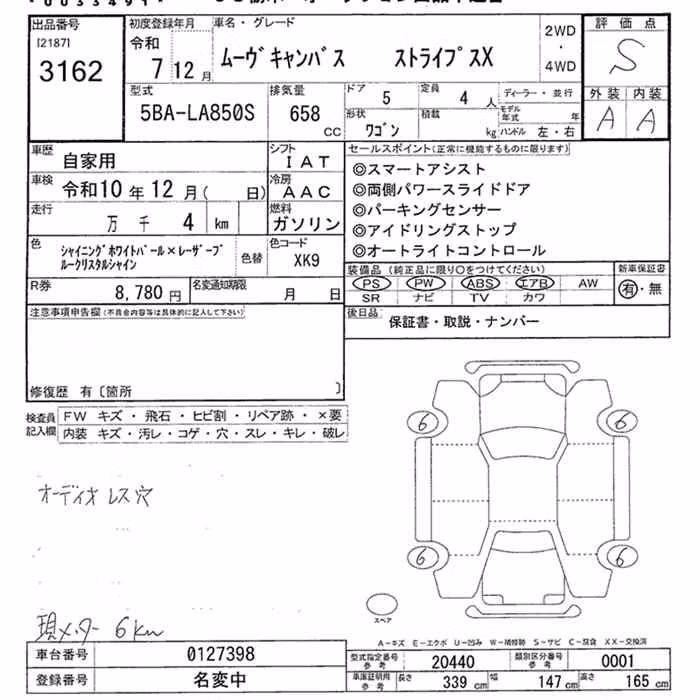 出品番号
[2187]
3162
初度登録年月
令和
7 12 月
車名・グレード
ムーヴキャンバス ストライプスX
2WD
・
4WD
評価点
S
外装 内装
A A
型式
5BA-LA850S
排気量
658
CC
ドア
5
定員
4 人
ディーラー・並行
形状
ワゴン
積載
kg
モデル年式 年
ハンドル 左・右
車歴
自家用
シフト
IAT
車検
令和10 年 12 月( 日)
冷房
AAC
走行
万 千 4 km
燃料
ガソリン
色
シャイニングホワイトパール×レーザーブ
ルークリスタルシャイン
色替
色コード
XK9
R券
8,780 円
名変通知期限
月 日
セールスポイント(正常に機能するものに限ります)
◎スマートアシスト
◎両側パワースライドドア
◎パーキングセンサー
◎アイドリングストップ
◎オートライトコントロール
装備品 (純正品に限り○をつけてください)
PS PW ABS エアB AW
SR ナビ TV カワ
新車保証書
有・無
後日品
保証書・取説・ナンバー
注意事項申告欄(不具合内容等は具体的に記入して下さい)
修復歴 有〔箇所 〕
検査員
記入欄
FW キズ・飛石・ヒビ割・リペア跡・×要
内装 キズ・汚レ・コゲ・穴・スレ・キレ・破レ
オーディオレス穴
現メーター 6km
6 6
6 6
スペア
A-キズ E-エクボ U-凹み W-補修跡 S-サビ C-腐食 XX-交換済
車台番号
0127398
登録番号
名変中
型式指定番号
参考
20440
類別区分番号
参考
0001
車庫証明用
参考
長さ 339 cm 幅 147 cm 高さ 165 cm